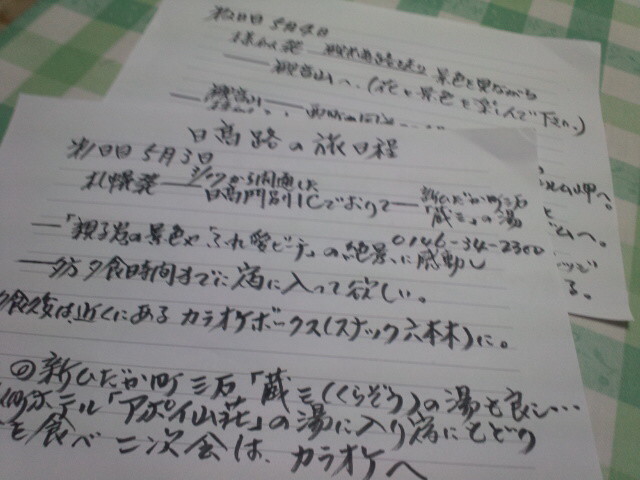 第2日目 5月4日
様似発
景色を見ながら
観音山へ。(花と景色を楽しんで下さい。)
観音山
岬へ。
へ。
る。
日高路の旅日程
第1日目 5月3日
札幌発 3/17から開通した
日高門別ICでおりて
新ひだか町三石
「蔵三」の湯
0146-34-2300
「親子岩の景色や「ふれ愛ビーチ」の絶景に感動し
夕方夕食時間までに宿に入って欲しい。
夕食後は、近くにあるカラオケボックス(スナック六本木)に。
◎新ひだか町三石「蔵三(くらぞう)の湯も良し…
ホテル「アポイ山荘」の湯に入り宿にもどり
を食べ二次会は、カラオケへ